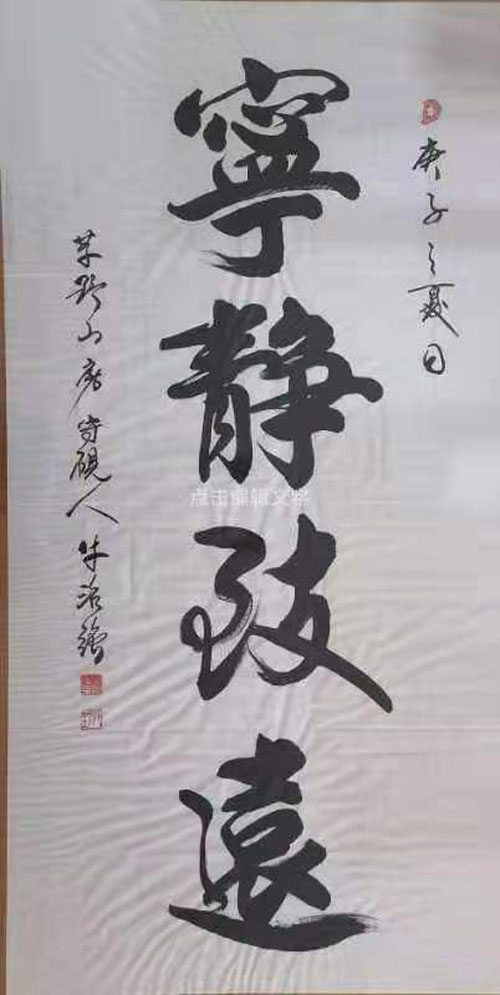 庚子之夏日
寧靜致遠
山房守硯人牛治
点击编辑文字